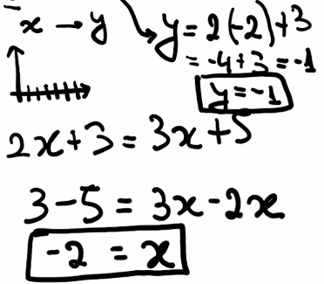 x → y
y = 2(-2)+3
= -4+3 = -1
y = -1
2x+3 = 3x+5
3-5 = 3x-2x
-2 = x